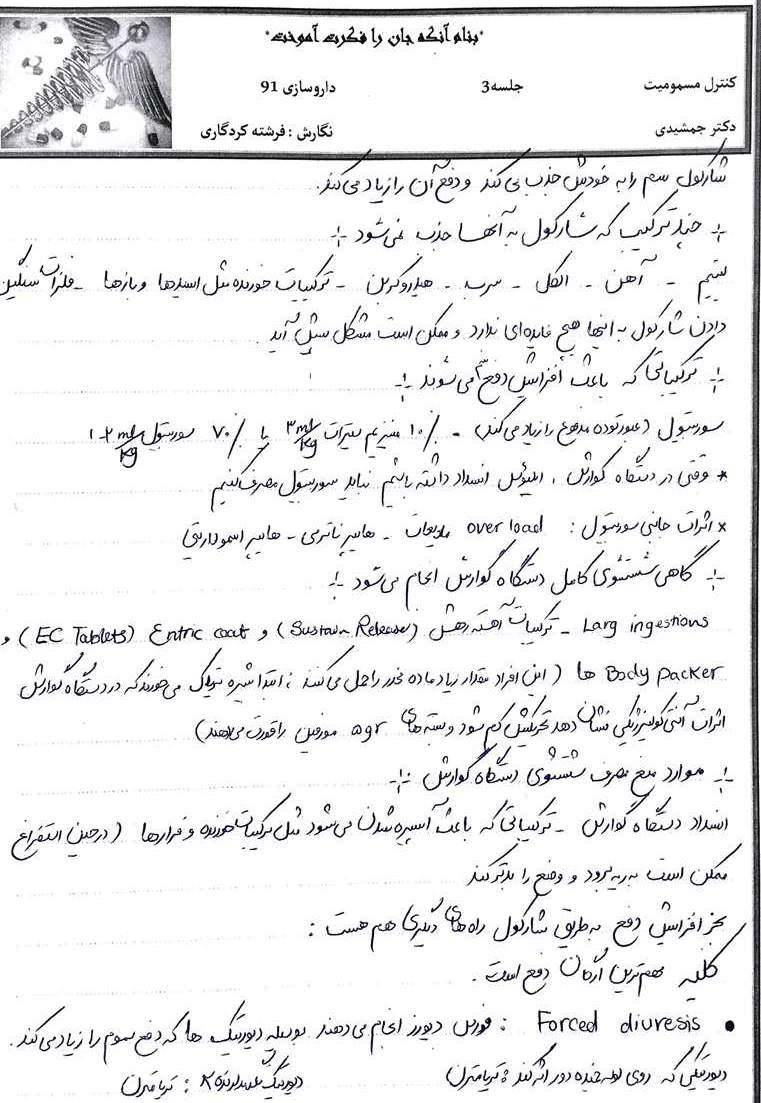 "بنام آنکه جان را فکرت آموخت"
کنترل مسمومیت جلسه3 داروسازی 91
دکتر جمشیدی نگارش : فرشته کردگاری
شارکول سم را به خودش جذب می کند و دفع آن را زیاد می کند.
÷ چند ترکیب که شارکول به آنها جذب نمی شود ÷
لیتیم - آهن - الکل - سرب - هیدروکربن - ترکیبات خورنده مثل اسیدها و بازها - فلزات سنگین
دادن شارکول به اینها هیچ فایده ای ندارد و ممکن است مشکل پیش آید.
÷ ترکیباتی که باعث افزایش دفع می شوند ÷
سوربیتول (عبور توده مدفوع را زیاد می کند) - ۱۰٪ منیزیم سیترات ۳ ml/kg یا ۷۰٪ سوربیتول ۱-۲ ml/kg
* وقتی در دستگاه گوارش، ایلئوس انسداد داشته باشیم نباید سوربیتول مصرف کنیم
* اثرات جانبی سوربیتول : over load مایعات - هایپر ناترمی - هایپر اسمولاریتی
÷ گاهی شستشوی کامل دستگاه گوارش انجام می شود ÷
Larg ingestions - ترکیبات آهسته رهش (Sustain Release) و Entric coat (EC Tablets) و
Body packer ها ( این افراد مقدار زیاد ماده مخدر را حمل می کنند ؛ ابتدا شیره تریاک می خورند که در دستگاه گوارش
اثرات آنتی کولینرژیکی نشان دهد تحریکش کم شود و بسته های agr مورفین را قورت می دهند)
÷ موارد منع مصرف شستشوی دستگاه گوارش ÷
انسداد دستگاه گوارش - ترکیباتی که باعث آسپیره شدن می شود مثل ترکیبات خورنده و فرارها ( در حین استفراغ
ممکن است به ریه برود و وضع را بدتر کند
بجز افزایش دفع به طریق شارکول راه های دیگری هم هست :
کلیه مهم ترین ارگان دفع است .
• Forced diuresis : فورس دیورز انجام می دهند بوسیله دیورتیک ها که دفع سموم را زیاد می کند.
دیورتیکی که روی لوله خمیده دور اثر کند : تریامترن دیورتیک نگهدارنده K : تریامترن